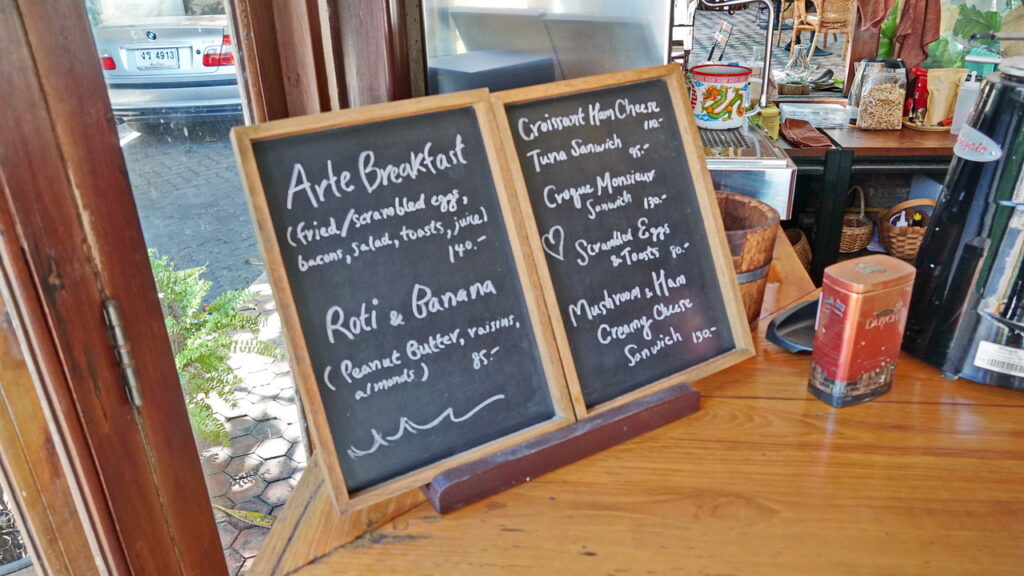 Arte Breakfast
(fried/scrambled eggs,
bacons, salad, toasts, juice)
140.-
Roti & Banana
(Peanut Butter, raisins,
almonds)
85.-
Croissant Ham Cheese
110.-
Tuna Sanwich 95.-
Croque Monsieur
Sanwich 130.-
Scrambled Eggs
& Toasts 80.-
Mushroom & Ham
Creamy Cheese
Sanwich 130.-
4913